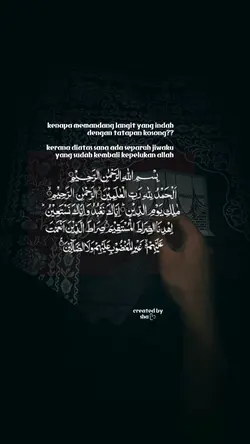 kenapa memandang langit yang indah
dengan tatapan kosong??
kerana diatas sana ada separuh jiwaku
yang sudah kembali kepelukan allah
بِسْمِ اللهِ الرَّحْمٰنِ الرَّحِيْمِ
اَلْحَمْدُ لِلّٰهِ رَبِّ الْعٰلَمِيْنَ ۙ الرَّحْمٰنِ الرَّحِيْمِ ۙ
مٰلِكِ يَوْمِ الدِّيْنِ ۗ اِيَّاكَ نَعْبُدُ وَاِيَّاكَ نَسْتَعِيْنُ
اِهْدِنَا الصِّرَاطَ الْمُسْتَقِيْمَ صِرَاطَ الَّذِيْنَ اَنْعَمْتَ
عَلَيْهِمْ ۙ غَيْرِ الْمَغْضُوْبِ عَلَيْهِمْ وَلَا الضَّاۤلِّيْنَ
created by